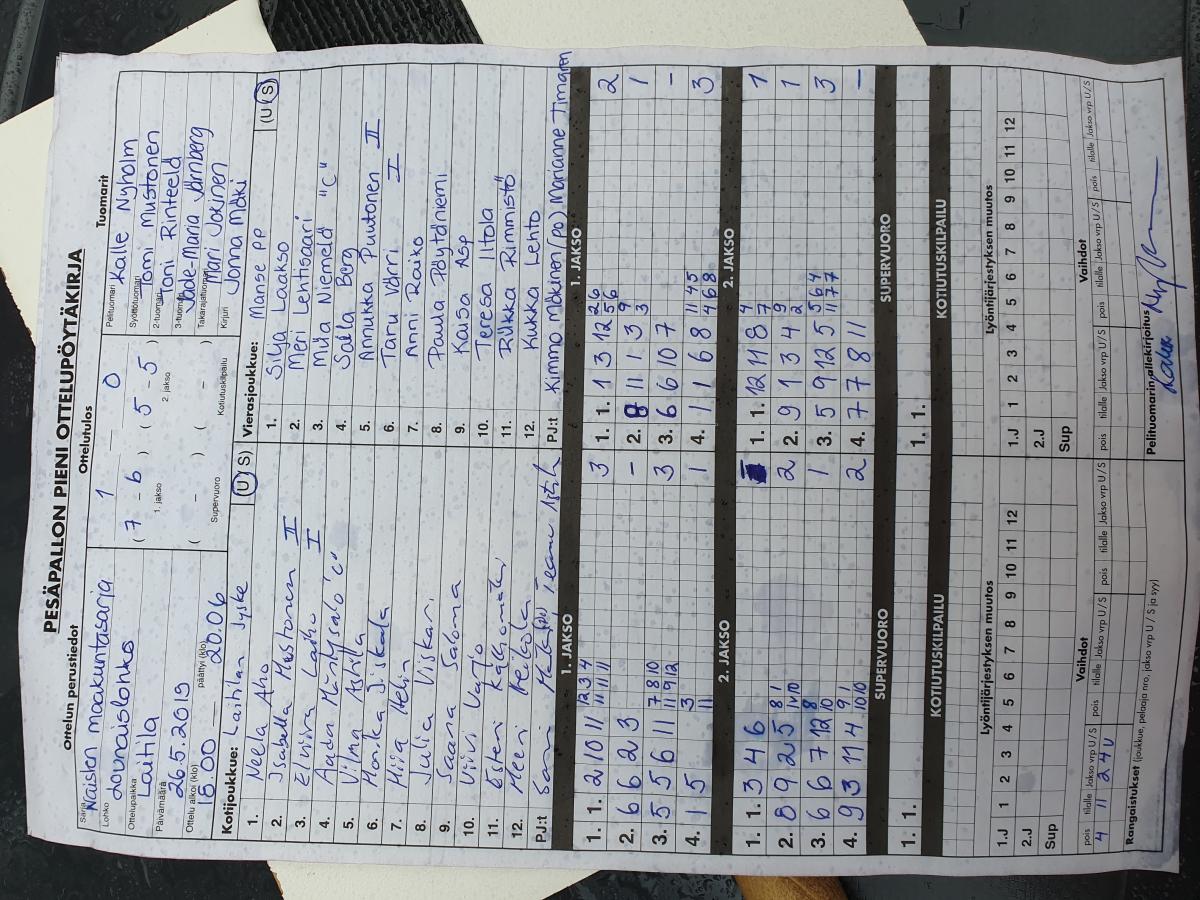 PESÄPALLON PIENI OTTELUPÖYTÄKIRJA
Ottelun perustiedot
Sarja Naisten maakuntasarja
Lohko Lounaislohko
Ottelupaikka Laitila
Päivämäärä 26.5.2019
Ottelu alkoi (klo) 18.00 päättyi (klo) 20.06
Ottelutulos
1 – 0
( 7 - 6 ) ( 5 - 5 )
1. jakso 2. jakso
( - ) ( - )
Supervuoro Kotiutuskilpailu
Tuomarit
Pelituomari Kalle Nyholm
Syöttötuomari Tomi Mustonen
2-tuomari Toni Rinteelä
3-tuomari Jade-Maria Värnberg
Takarajatuomari Mari Jokinen
Kirjuri Jonna Mäki
Kotijoukkue: Laitilan Jyske (U/S)
1. Neela Aho
2. Isabella Mustonen II
3. Elviira Laiho I
4. Aada Mäntysalo "C"
5. Vilma Asfila
6. Monika Jiskala
7. Miia Helin
8. Julia Viskari
9. Saana Saloma
10. Viivi Varjo
11. Esteri Kallionmäki
12. Meeri Heikola
PJ:t Sami
Vierasjoukkue: Manse PP (U/S)
1. Silja Laakso
2. Meri Lehtisaari
3. Miia Niemelä "C"
4. Salla Berg
5. Annukka Puutonen II
6. Taru Värri I
7. Anni Raiko
8. Paula Pöytäniemi
9. Kaisa Asp
10. Teresa Iltola
11. Riikka Rimmistö
12. Kukka Lehto
PJ:t Kimmo Mäkinen (PO) Marianne Timgren
1. JAKSO
1. 1. 2 10 11 12 3 4 11 11 11 3
2. 6 6 2 3 –
3. 5 5 6 11 7 8 10 11 9 12 3
4. 1 5 3 11 1
1. JAKSO
1. 1. 1 3 12 2 6 5 6 2
2. 8 11 1 3 9 3 1
3. 6 6 10 7 –
4. 1 1 6 8 11 4 5 4 6 8 3
2. JAKSO
1. 1. 3 4 6
2. 8 9 2 5 8 1 10 10 2
3. 6 7 12 8 10 1
4. 9 3 11 4 9 1 10 10 2
2. JAKSO
1. 1. 12 11 8 4 7 1
2. 9 1 3 4 9 2 1
3. 5 9 12 5 5 6 4 11 7 7 3
4. 7 7 8 11 –
SUPERVUORO
1. 1.
SUPERVUORO
1. 1.
KOTIUTUSKILPAILU
KOTIUTUSKILPAILU
Lyöntijärjestyksen muutos
1.J 1 2 3 4 5 6 7 8 9 10 11 12
2.J
Sup
Lyöntijärjestyksen muutos
1.J 1 2 3 4 5 6 7 8 9 10 11 12
2.J
Sup
Vaihdot
pois tilalle Jakso vrp U / S pois tilalle Jakso vrp U / S pois tilalle Jakso vrp U / S
4 11 2 4 U
Vaihdot
pois tilalle Jakso vrp U / S pois tilalle Jakso vrp U / S pois tilalle Jakso vrp U / S
Rangaistukset (joukkue, pelaaja nro, jakso vrp U / S ja syy)
Pelituomarin allekirjoitus